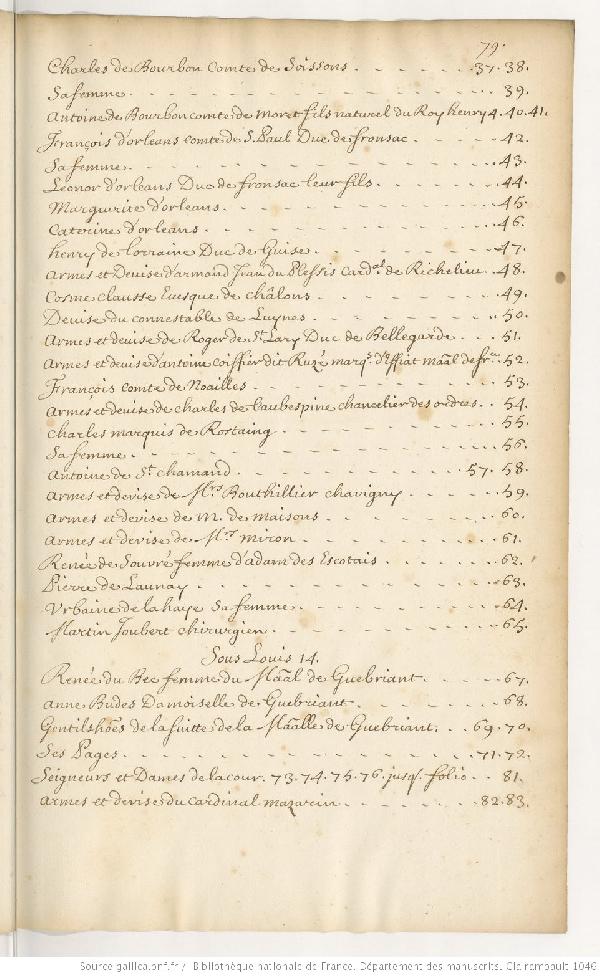 79.
Charles de Bourbon Comte de Soissons. 37. 38.
Sa femme. 39.
Antoine de Bourbon comte de Moret fils naturel du Roy henry 4. 40. 41.
François d'orleans comte de S. Paul Duc de fronsac. 42.
Sa femme. 43.
Leonor d'orleans Duc de fronsac leur fils. 44.
Marguerite d'orleans. 45.
Caterine d'orleans. 46.
henry de lorraine Duc de Guise. 47.
Armes et Devise d'armand Jean du Plessis Card.al de Richelieu. 48.
Cosme clausse Evesque de châlons. 49.
Devise du connestable de Luynes. 50.
Armes et devise de Roger de St Lary Duc de Bellegarde. 51.
Armes et devise d'antoine coiffier dit Ruzé marq.s d'effiat maal de fr. 52.
François comte de Noailles. 53.
Armes et devise de charles de laubespine chancelier des ordres. 54.
Charles marquis de Rostaing. 55.
Sa femme. 56.
Antoine de St chamand. 57. 58.
Armes et devise de Mrs Bouthillier chavigny. 59.
Armes et devise de M. de Maisons. 60.
Armes et devise de Mr miron. 61.
Renée de Souvré femme d'adam des Escotais. 62.
Pierre de Launay. 63.
Urbaine de la haye sa femme. 64.
Martin Joubert chirurgien. 65.
Sous Louis 14.
Renée du Bec femme du Maal de Guebriant. 67.
Anne Budes Damoiselle de Guebriant. 68.
Gentilshoes de la suitte de la Maalle de Guebriant. 69. 70.
Ses Pages. 71. 72.
Seigneurs et Dames de la cour. 73. 74. 75. 76. jusq. folio. 81.
Armes et devise du Cardinal mazarin. 82. 83.
Source gallica.bnf.fr / Bibliothèque nationale de France. Département des manuscrits. Clairambault 1046